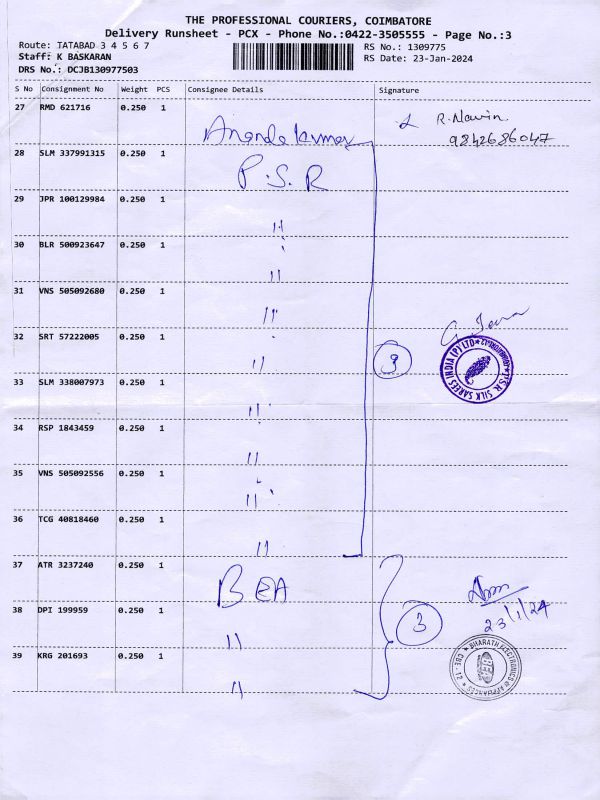 THE PROFESSIONAL COURIERS, COIMBATORE
Delivery Runsheet - PCX - Phone No.:0422-3505555 - Page No.:3
Route: TATABAD 3 4 5 6 7
Staff: K BASKARAN
DRS No.: DCJB130977503
RS No.: 1309775
RS Date: 23-Jan-2024
S No Consignment No Weight PCS Consignee Details Signature
27 RMD 621716 0.250 1 Anandakumar R.Navin
9842686047
28 SLM 337991315 0.250 1 P.S.R
29 JPR 100129984 0.250 1 "
30 BLR 500923647 0.250 1 "
31 VNS 505092680 0.250 1 "
32 SRT 57222005 0.250 1 " 9
P.S.R. SILK SAREES INDIA (P) LTD
33 SLM 338007973 0.250 1 "
34 RSP 1843459 0.250 1 "
35 VNS 505092556 0.250 1 "
36 TCG 40818460 0.250 1 "
37 ATR 3237240 0.250 1 BEA
38 DPI 199959 0.250 1 " 3 23/1/24
39 KRG 201693 0.250 1 "
BHARATH ELECTRONICS & APPLIANCES
CBE-12